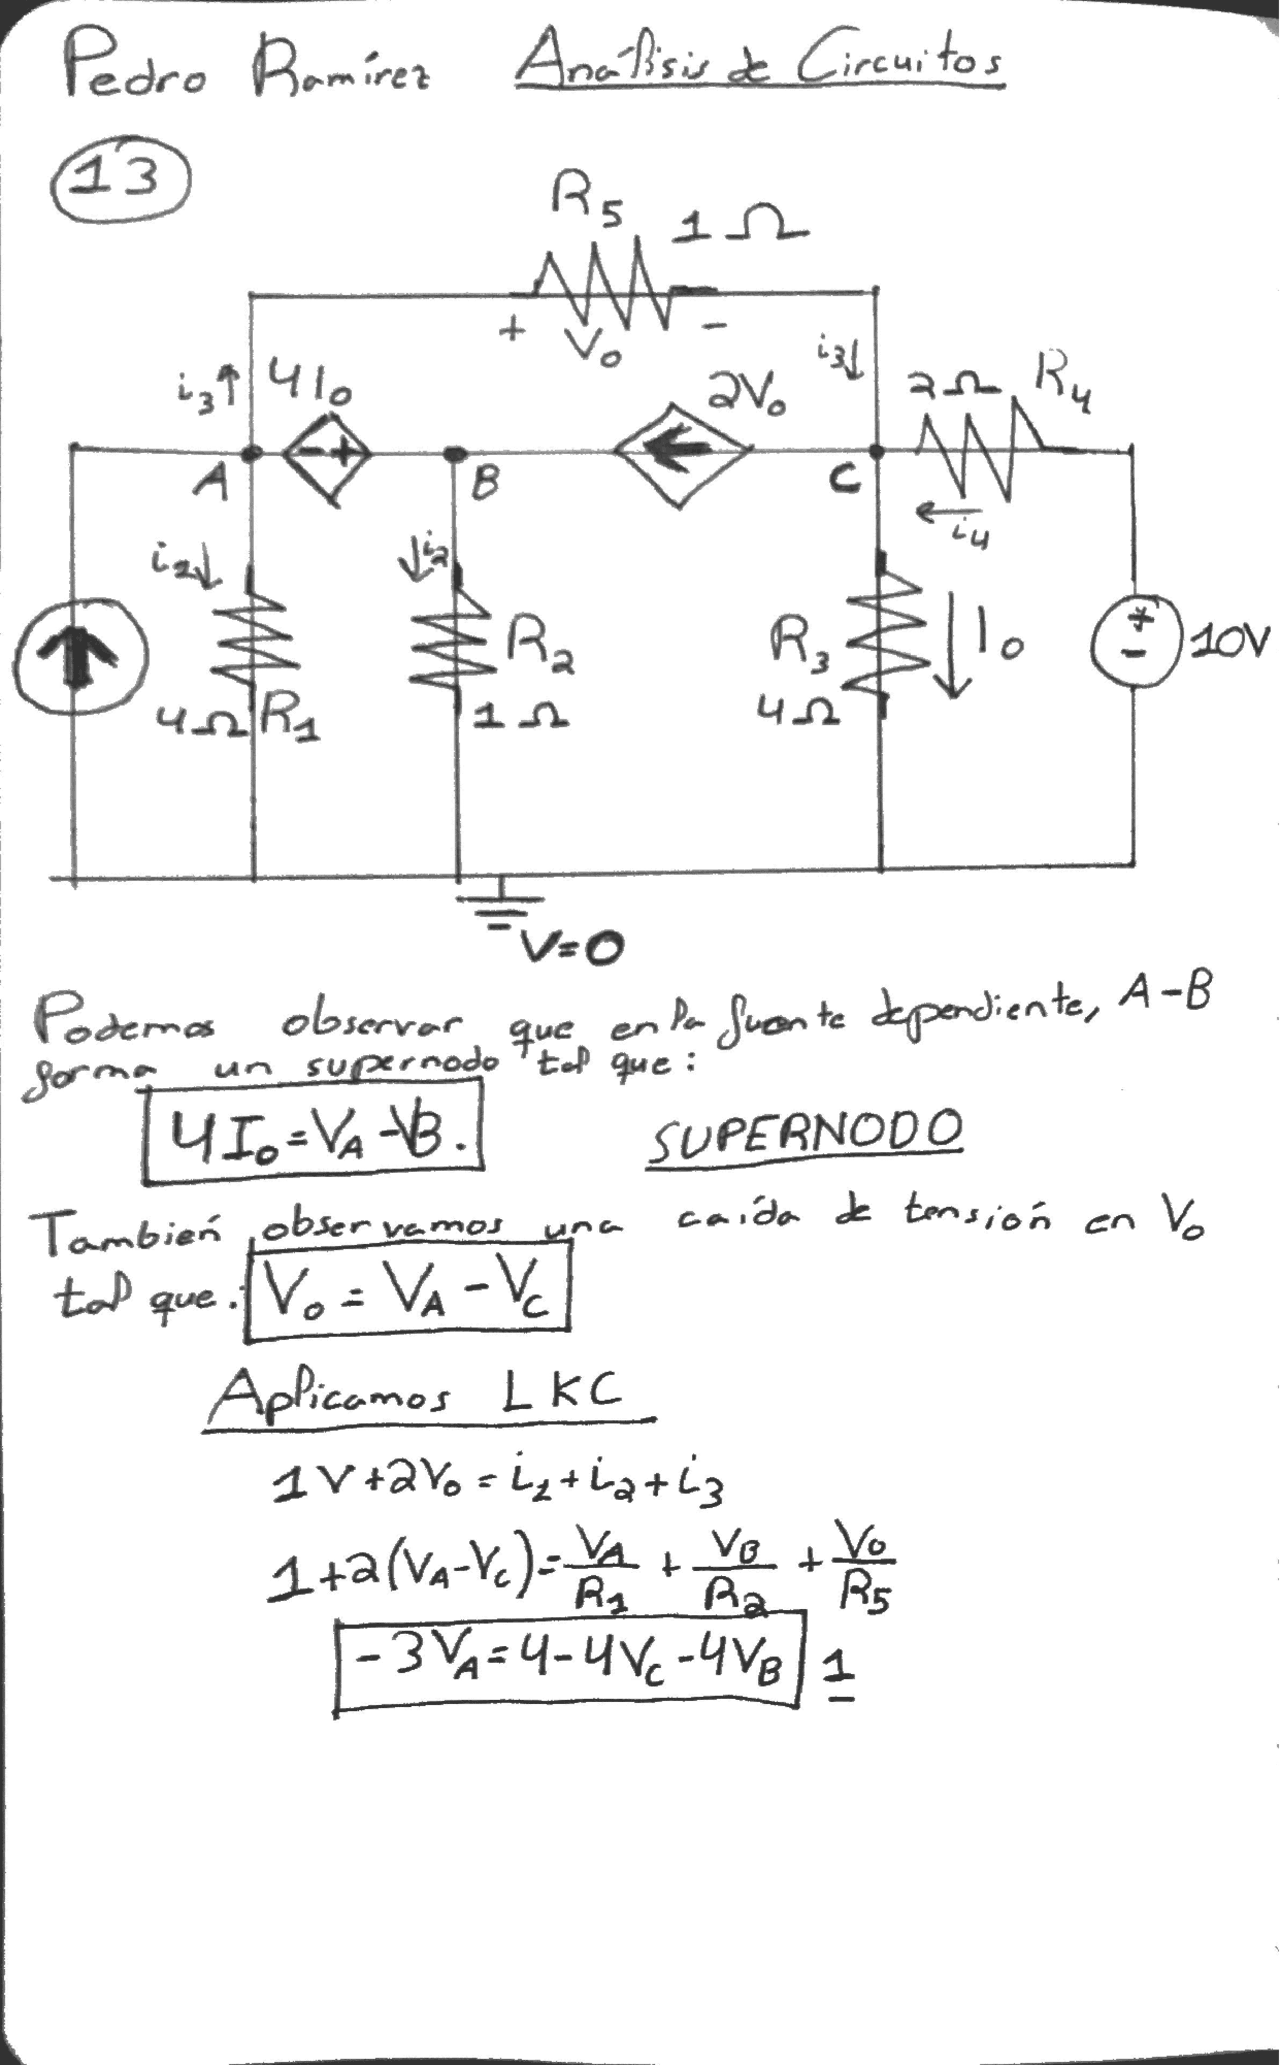 Pedro Ramírez Análisis de Circuitos
13
R5 1Ω
+ Vo -
i3↑ 4Io
2Vo
i3↓
2Ω R4
- +
A
B
C
i4
i1↓
i2
R2
1Ω
4Ω R1
R3
4Ω
Io
+
-
10V
V=0
Podemos observar que en la fuente dependiente, A-B
forma un supernodo tal que:
4Io = VA - VB.
SUPERNODO
También observamos una caída de tensión en Vo
tal que: Vo = VA - VC
Aplicamos LKC
1V + 2Vo = i1 + i2 + i3
1 + 2(VA - VC) = VA/R1 + VB/R2 + Vo/R5
-3VA = 4 - 4VC - 4VB 1